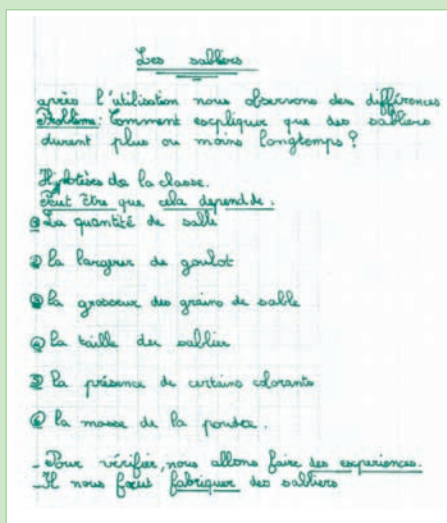 Les sabliers
après l'utilisation nous observons des différences
Problème: Comment escpliquer que des sabliers
durent plus ou moins longtemps?
Hypotèses de la classe.
Peut être que cela depend de:
① La quantité de sable
② la largerer de goulot
③ la grosseur des grains de sable
④ la taille du sablier
⑤ la présence de certains colorants
⑥ la masse de la poudre.
- Pour vérifier, nous allons faire des experiences.
- Il nous faut fabriquer des sabliers